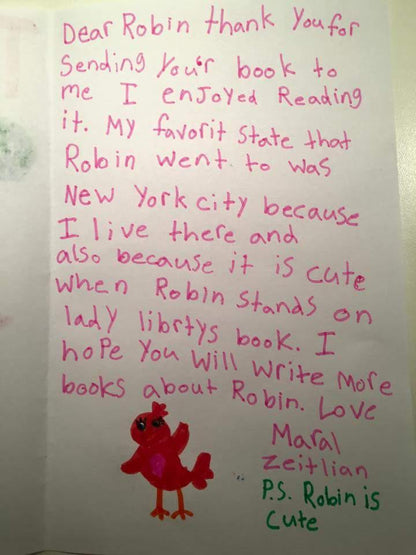 Dear Robin thank You for
Sending Your book to
me I enjoyed Reading
it. My favorit state that
Robin went to was
New York city because
I live there and
also because it is cute
when Robin stands on
lady librtys book. I
hope You Will Write More
books about Robin. Love
Maral
Zeitlian
P.S. Robin is
cute